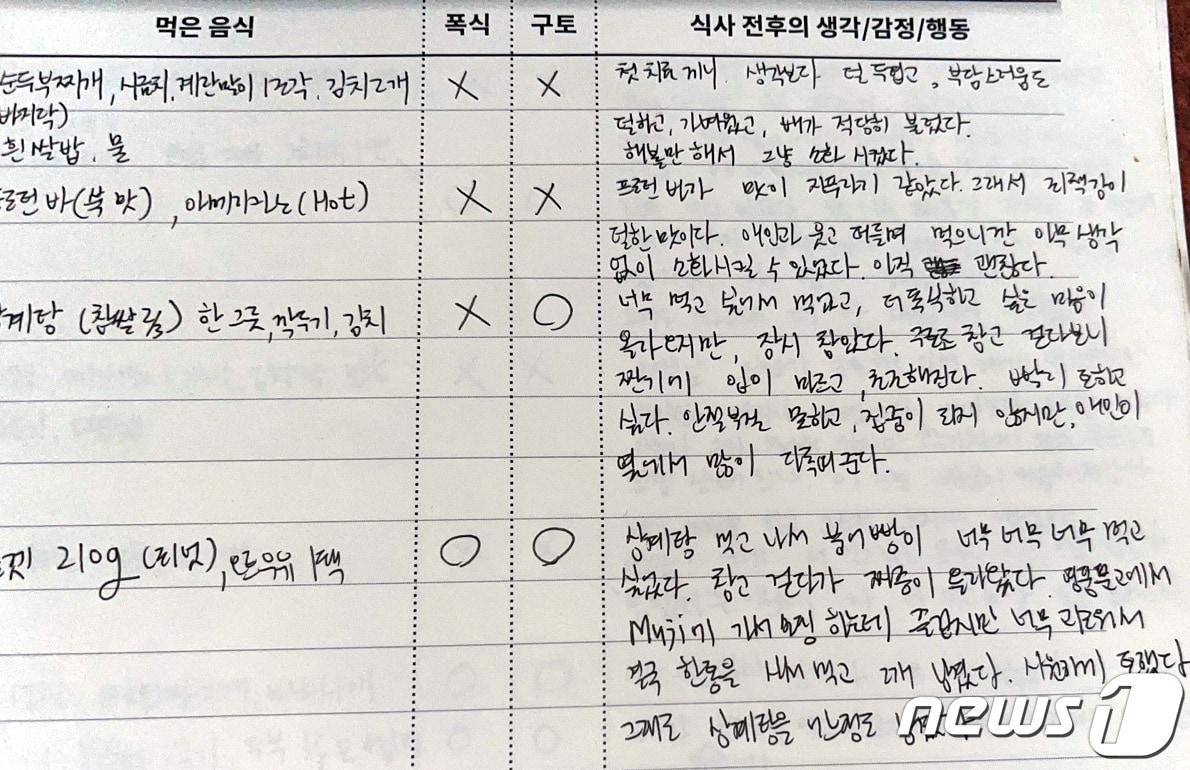 먹은 음식 폭식 구토 식사 전후의 생각/감정/행동
순두부찌개, 시금치, 계란말이 1조각, 김치 2개 X X 첫 치료 끼니. 생각보다 덜 두렵고, 부담스러움도
바지락)
덜하고, 가벼웠고, 배가 적당히 불렀다.
흰쌀밥, 물 해볼만 해서 그냥 소화시켰다.
바(쑥 맛), 아메리카노(Hot) X X 맛이 같았다. 그래서 죄책감이
덜한 맛이다. 애인과 웃고 떠들며 먹으니깐 아무 생각
없이 소화시킬 수 있었다. 아직 괜찮다.
계탕 (찹쌀밥) 한 그릇, 깍두기, 김치 X O 너무 먹고 싶어서 먹었고, 더 폭식하고 싶은 마음이
올라오지만, 잠시 참았다. 참고 걷다보니
짠기에 입이 마르고, 초조해진다. 빨리 토하고
싶다. 안절부절 못하고, 집중이 되지 않지만, 애인이
옆에서 많이 다독여준다.
210g (피넛), 1팩 O O 삼계탕 먹고 나서 붕어빵이 너무 너무 너무 먹고
싶었다. 참고 걷다가 짜증이 올라왔다. 영풍문고에서
Muji까지 가서 쇼핑 하는데 즐겁지만 너무 괴로워서
결국 한통을 사서 먹고 2개 남겼다. 시원하게 토했다
그대로 삼계탕을 간정도
news1